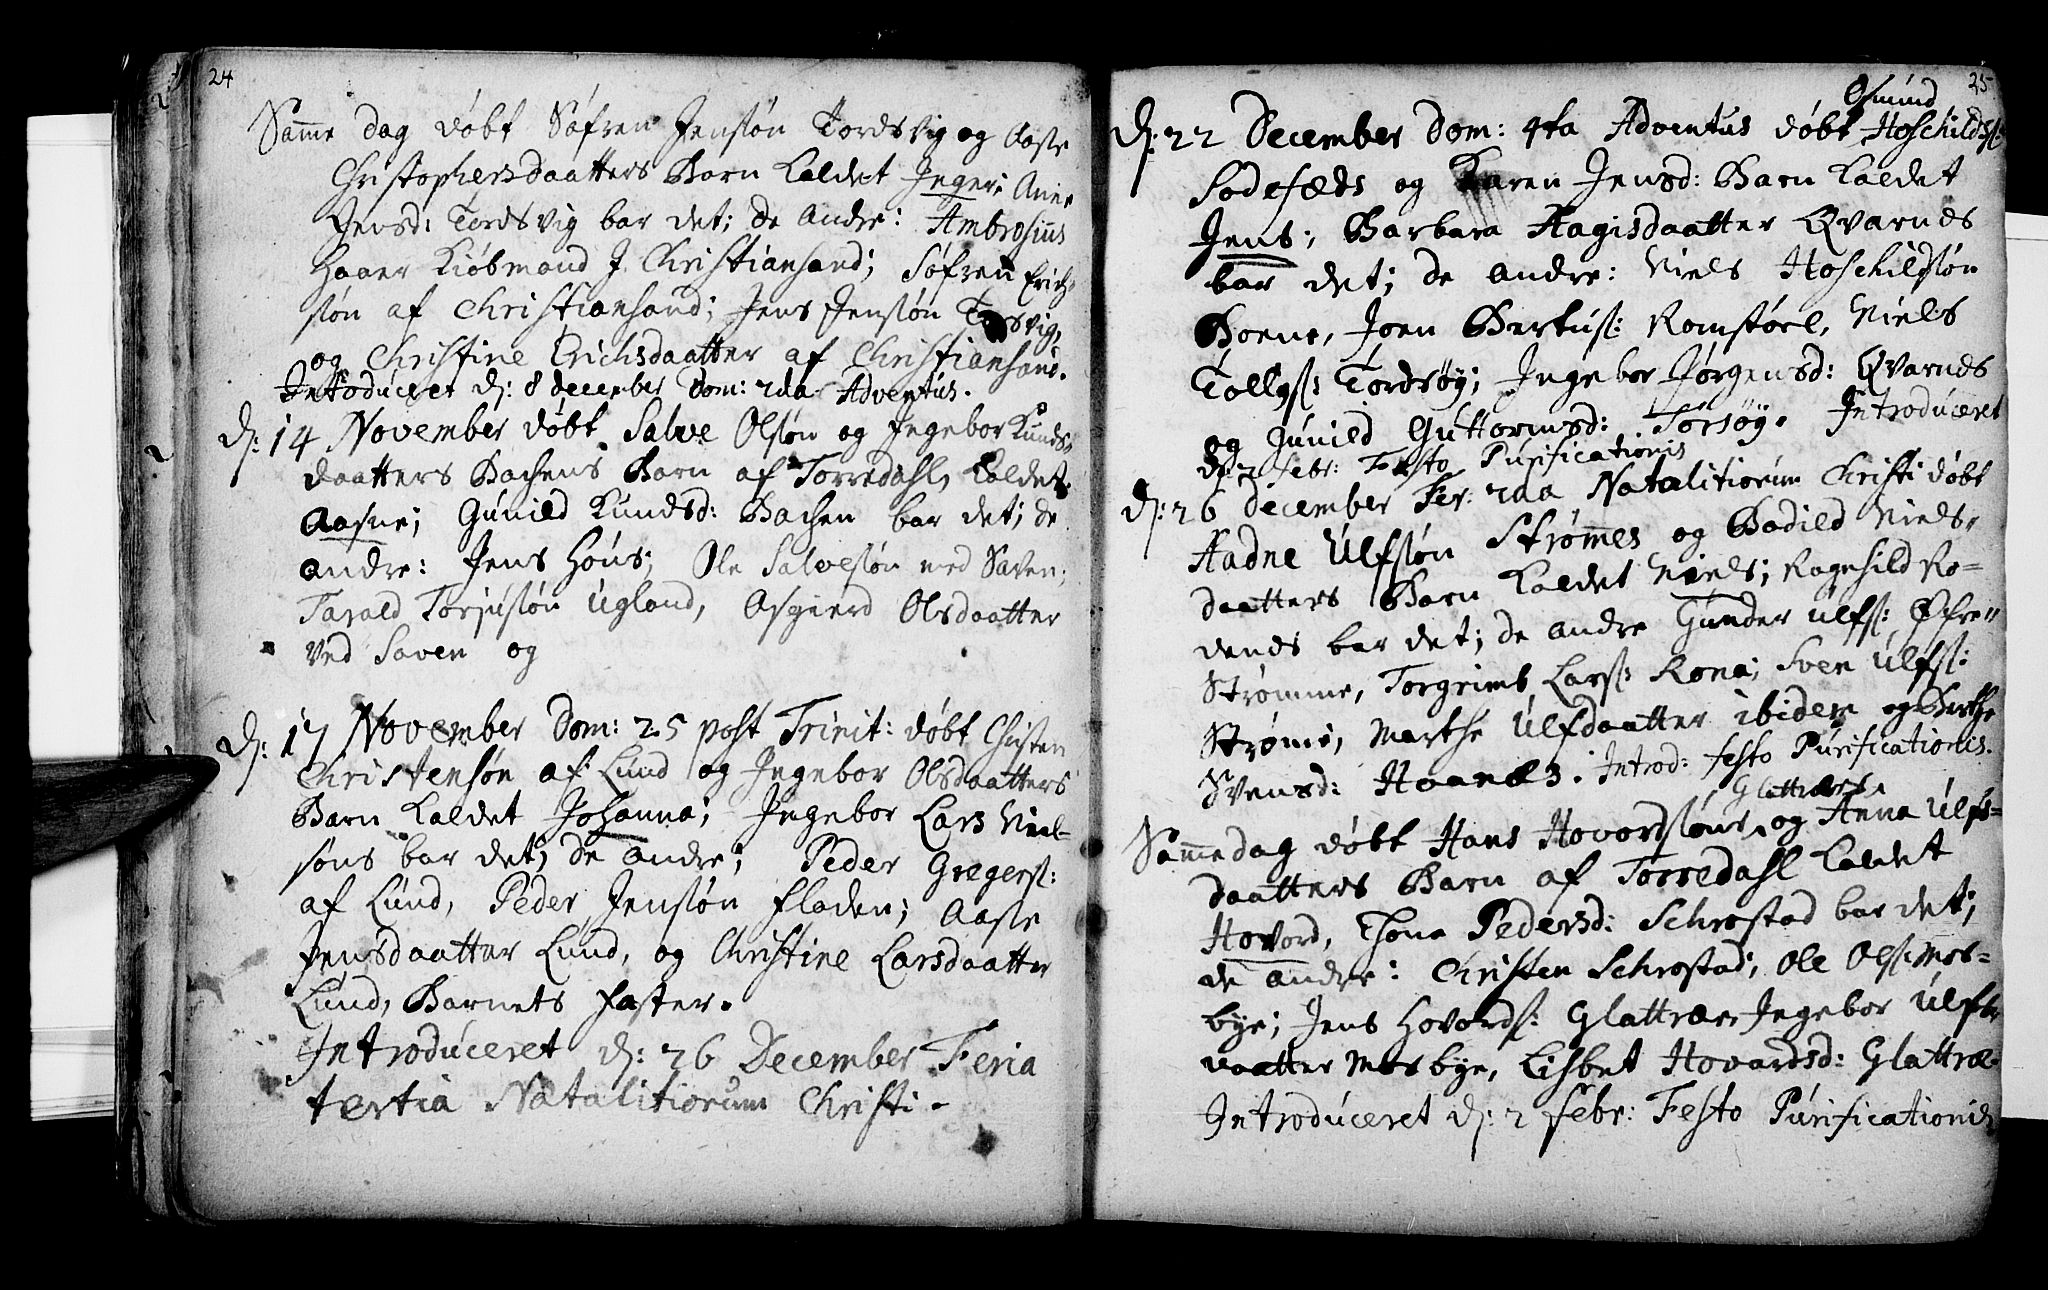 24
Samme dag döbt Söfren Jensøn Tordsvig og Aasse
Christophersdaatters Barn kaldet Inger; Anne
Jensd: Tordsvig bar det; de Andre: Ambrosius
Haaer Kiöbmand J. Christiansand; Söfren Erich-
søn af Christiansand; Jens Jensøn Torsvig,
og Christine Erichsdaatter af Christiansand.
Introduceret d: 8 december Dom: 2da Adventus.
d: 14 November döbt Salve Olsøn og Ingebor Kunds-
daatters Bachens Barn af Torredahl, kaldet
Aasne; Gunild Kundsd: Bachen bar det; de
andre: Jens Höus; Ole Salvesøn med Saven;
Tarald Torjusøn Ugland, Asgierd Olsdaatter
ved Saven og
d: 17 November Dom: 25 post Trinit: döbt Christen
Christensøn af Lund og Ingebor Olsdaatters
Barn kaldet Johanna; Ingebor Lars Niel-
søns bar det; de andre; Peder Gregers:
af Lund, Peder Jensøn Fladen; Aasse
Jensdaatter Lund, og Christine Larsdaatter
Lund, Barnets Faster.
Introduceret d: 26 December Feria
tertia Natalitiorum Christi.
25
Osmund
d: 22 December Dom: 4ta Adventus döbt Hoschilds:
Sodefæds og Karen Jensd: Barn kaldet
Jens; Barbara Aagisdaatter Qvarnes
bar det; de andre: Niels Hoschildsøn
Boene, Joen Bertus: Romstöel, Niels
Tollgs: Tordsöy; Ingebor Jörgensd: Qvarnes
og Gunild Guttormsd: Torsöy. Introduceret
d: 2 febr: Festo Purificationis
d: 26 December Fer: 2da Natalitiorum Christi döbt
Aadne Ulfsøn Strömmes og Bodild Niels-
daatters Barn kaldet Niels; Ragnhild Ro-
denes bar det; de andre Gunder Ulfs: Öfre-
Strömme, Torgrimb Lars: Rona; Sven Ulfs:
Ströme, Marthe Ulfdaatter ibidem og Birthe
Svensd: Haanes. Introd: festo Purificationis.
Glattræes
Samme dag döbt Hans Hovordsøns og Anna Ulfs-
daatters Barn af Torredahl kaldet
Hovord, Thona Pedersd: Schrostad bar det;
de andre: Christen Schrostad; Ole Ols: Mos-
bye; Jens Hovords: Glattræe, Ingebor Ulfs
daatter Mosbye, Lisbet Hovardsd: Glattræ.
Introduceret d: 2 febr: Festo Purificationis